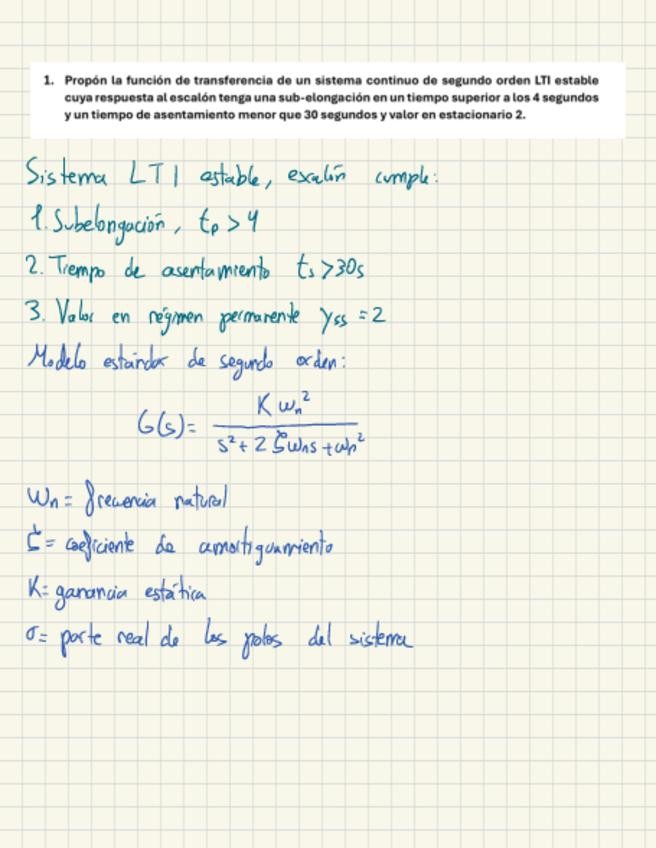 1. Propón la función de transferencia de un sistema continuo de segundo orden LTI estable
cuya respuesta al escalón tenga una sub-elongación en un tiempo superior a los 4 segundos
y un tiempo de asentamiento menor que 30 segundos y valor en estacionario 2.
Sistema LTI estable, exalón cumple:
1. Subelongación, tp > 4
2. Tiempo de asentamiento ts > 30s
3. Valor en régimen permanente yss = 2
Modelo estándar de segundo orden:
G(s) = K ωn² / (s² + 2ζωns + ωn²)
ωn = frecuencia natural
ζ = coeficiente de amortiguamiento
K = ganancia estática
σ = parte real de los polos del sistema